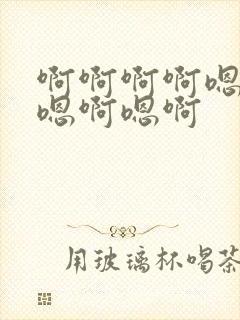 啊啊啊啊嗯
嗯啊嗯啊
用玻璃杯喝茶